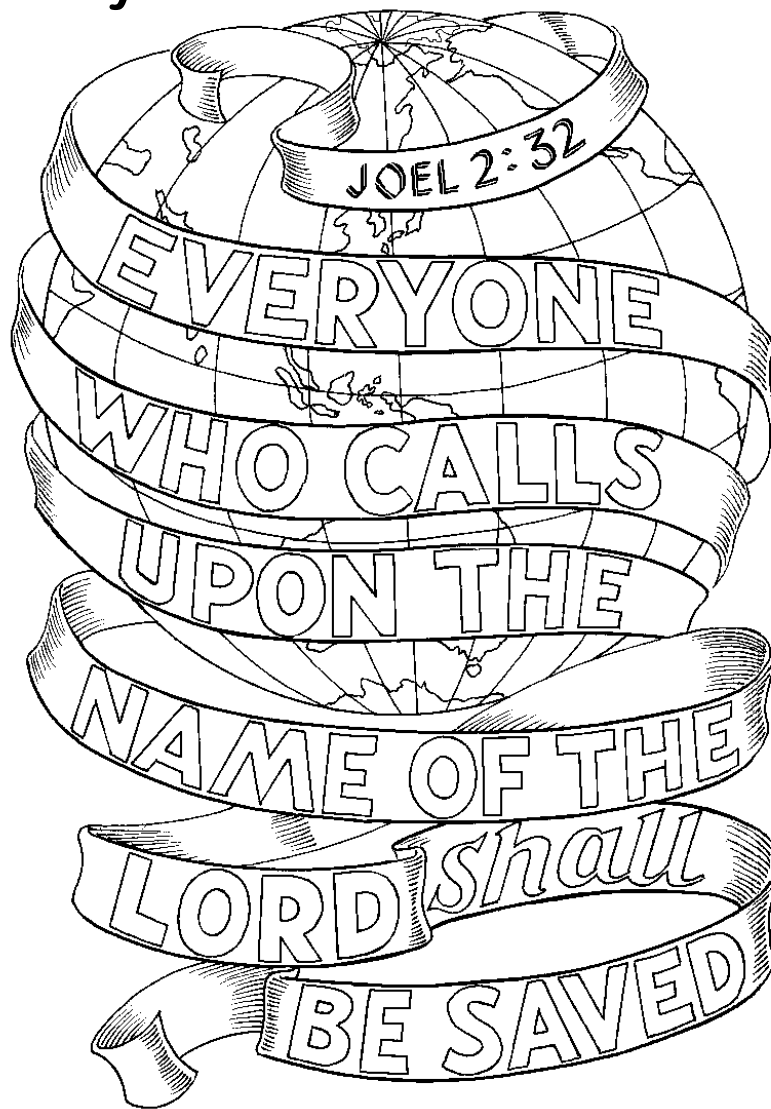 JOEL 2:32
EVERYONE
WHO CALLS
UPON THE
NAME OF THE
LORD shall
BE SAVED